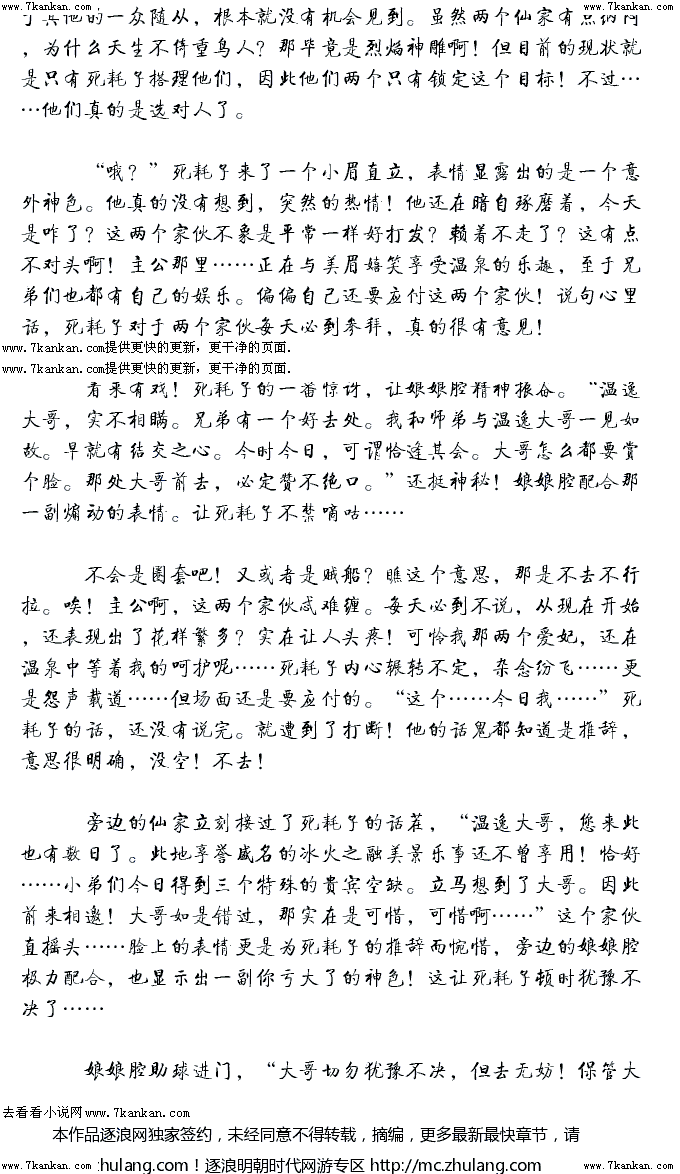 www.7kankan.com www.7kankan.com
于其他的一众随从，根本就没有机会见到。虽然两个仙家有点纳闷
，为什么天生不待重鸟人？那毕竟是烈焰神雕啊！但目前的现状就
是只有死耗子搭理他们，因此他们两个只有锁定这个目标！不过…
…他们真的是选对人了。
“哦？”死耗子来了一个小眉直立，表情显露出的是一个意
外神色。他真的没有想到，突然的热情！他还在暗自琢磨着，今天
是咋了？这两个家伙不象是平常一样好打发？赖着不走了？这有点
不对头啊！主公那里……正在与美眉嬉笑享受温泉的乐趣，至于兄
弟们也都有自己的娱乐。偏偏自己还要应付这两个家伙！说句心里
话，死耗子对于两个家伙每天必到参拜，真的很有意见！
www.7kankan.com提供更快的更新，更干净的页面.
www.7kankan.com提供更快的更新，更干净的页面.
看来有戏！死耗子的一番惊讶，让娘娘腔精神振奋。“温逸
大哥，实不相瞒。兄弟有一个好去处。我和师弟与温逸大哥一见如
故。早就有结交之心。今时今日，可谓恰逢其会。大哥怎么都要赏
个脸。那处大哥前去，必定赞不绝口。”还挺神秘！娘娘腔配合那
一副煽动的表情。让死耗子不禁嘀咕……
不会是圈套吧！又或者是贼船？瞧这个意思，那是不去不行
拉。唉！主公啊，这两个家伙忒难缠。每天必到不说，从现在开始
，还表现出了花样繁多？实在让人头疼！可怜我那两个爱妃，还在
温泉中等着我的呵护呢……死耗子内心辗转不定，杂念纷飞……更
是怨声载道……但场面还是要应付的。“这个……今日我……”死
耗子的话，还没有说完。就遭到了打断！他的话鬼都知道是推辞，
意思很明确，没空！不去！
旁边的仙家立刻接过了死耗子的话茬，“温逸大哥，您来此
也有数日了。此地享誉盛名的冰火之融美景乐事还不曾享用！恰好
……小弟们今日得到三个特殊的贵宾空缺。立马想到了大哥。因此
前来相邀！大哥如是错过，那实在是可惜，可惜啊……”这个家伙
直摇头……脸上的表情更是为死耗子的推辞而惋惜，旁边的娘娘腔
极力配合，也显示出一副你亏大了的神色！这让死耗子顿时犹豫不
决了……
娘娘腔助球进门，“大哥切勿犹豫不决，但去无妨！保管大
去看看小说网www.7kankan.com
本作品逐浪网独家签约，未经同意不得转载，摘编，更多最新最快章节，请
www.7kankan.com zhulang.com！逐浪明朝时代网游专区 http://mc.zhulang.com www.7kankan.com